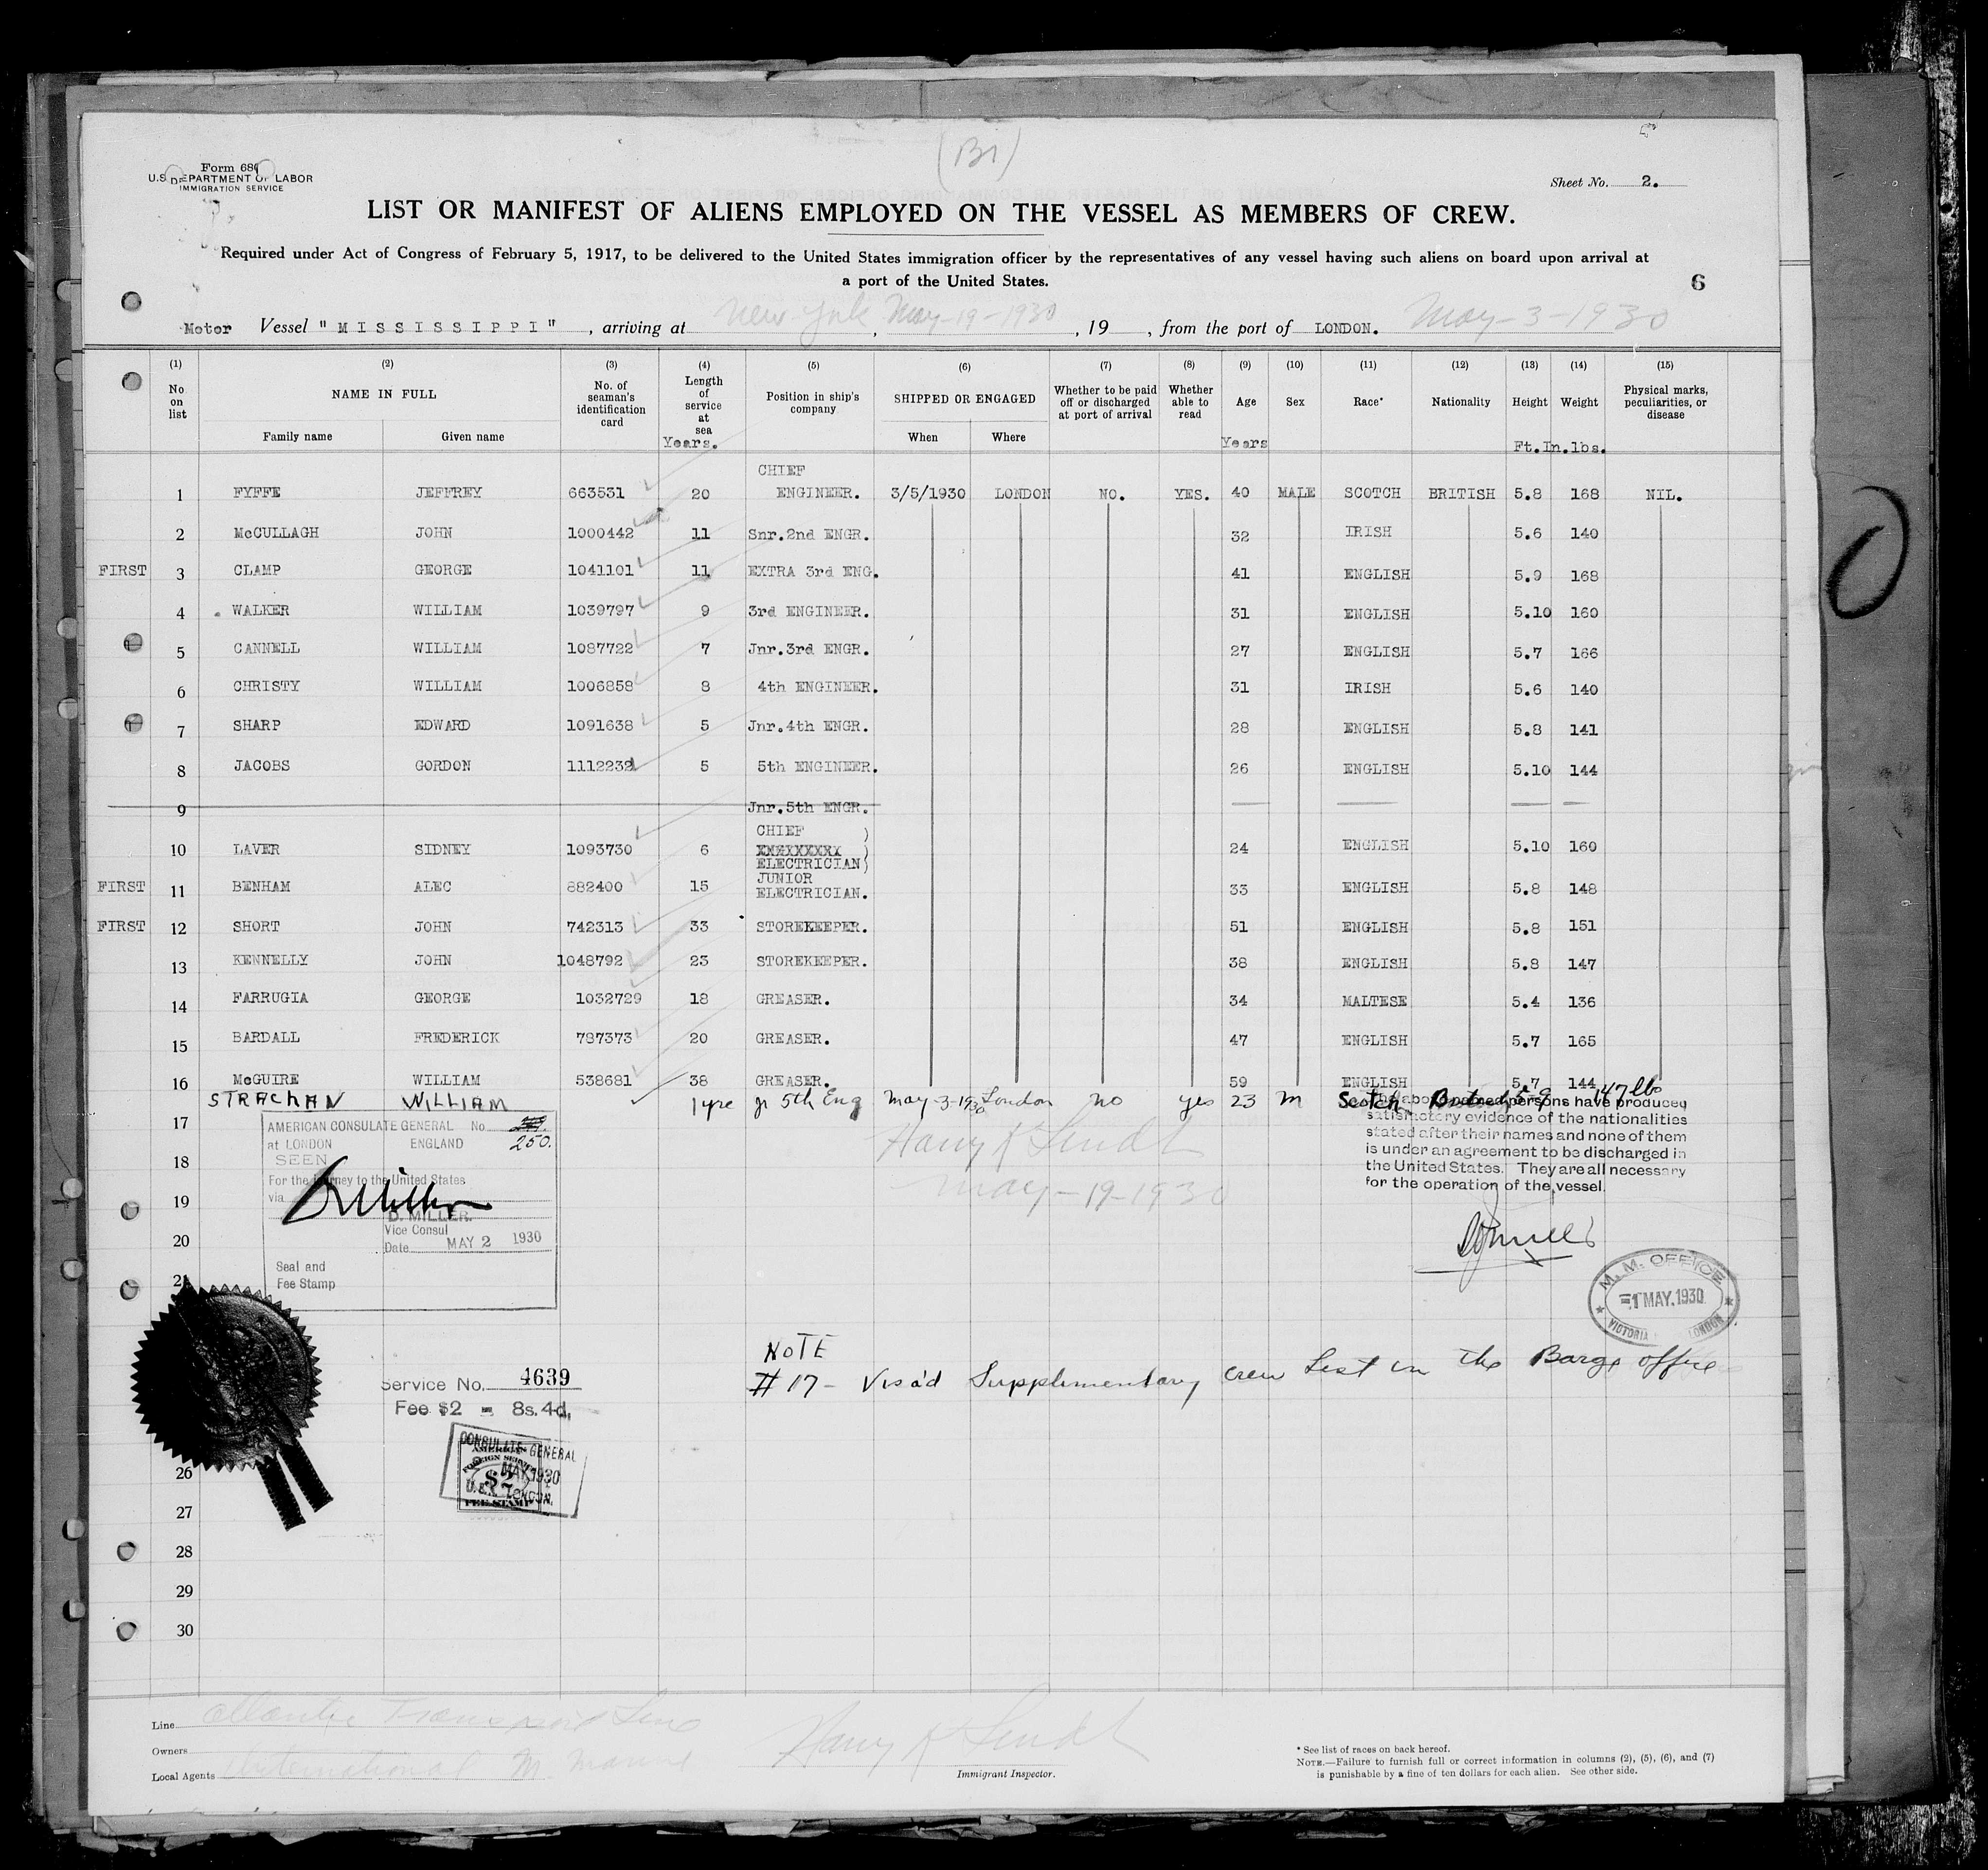 (B1)
Form 680
U.S. DEPARTMENT OF LABOR
IMMIGRATION SERVICE
Sheet No. 2.
LIST OR MANIFEST OF ALIENS EMPLOYED ON THE VESSEL AS MEMBERS OF CREW.
Required under Act of Congress of February 5, 1917, to be delivered to the United States immigration officer by the representatives of any vessel having such aliens on board upon arrival at
a port of the United States.
6
Motor Vessel "MISSISSIPPI", arriving at New York May-19-1930, 19, from the port of LONDON. May-3-1930
(1) No on list (2) NAME IN FULL Family name Given name (3) No. of seaman's identification card (4) Length of service at sea Years. (5) Position in ship's company (6) SHIPPED OR ENGAGED When Where (7) Whether to be paid off or discharged at port of arrival (8) Whether able to read (9) Age Years (10) Sex (11) Race* (12) Nationality (13) Height Ft.In. (14) Weight lbs. (15) Physical marks, peculiarities, or disease
1 FYFFE JEFFREY 663531 20 CHIEF ENGINEER. 3/5/1930 LONDON NO. YES. 40 MALE SCOTCH BRITISH 5.8 168 NIL.
2 McCULLAGH JOHN 1000442 11 Snr.2nd ENGR. 32 IRISH 5.6 140
FIRST 3 CLAMP GEORGE 1041101 11 EXTRA 3rd ENG. 41 ENGLISH 5.9 168
4 WALKER WILLIAM 1039797 9 3rd ENGINEER. 31 ENGLISH 5.10 160
5 CANNELL WILLIAM 1087722 7 Jnr.3rd ENGR. 27 ENGLISH 5.7 166
6 CHRISTY WILLIAM 1006858 8 4th ENGINEER. 31 IRISH 5.6 140
7 SHARP EDWARD 1091638 5 Jnr.4th ENGR. 28 ENGLISH 5.8 141
8 JACOBS GORDON 1112232 5 5th ENGINEER. 26 ENGLISH 5.10 144
9 Jnr.5th ENGR.
10 LAVER SIDNEY 1093730 6 CHIEF ELECTRICIAN 24 ENGLISH 5.10 160
FIRST 11 BENHAM ALEC 882400 15 JUNIOR ELECTRICIAN. 33 ENGLISH 5.8 148
FIRST 12 SHORT JOHN 742313 33 STOREKEEPER. 51 ENGLISH 5.8 151
13 KENNELLY JOHN 1048792 23 STOREKEEPER. 38 ENGLISH 5.8 147
14 FARRUGIA GEORGE 1032729 18 GREASER. 34 MALTESE 5.4 136
15 BARDALL FREDERICK 787373 20 GREASER. 47 ENGLISH 5.7 165
16 McGUIRE WILLIAM 538681 38 GREASER. 59 ENGLISH 5.7 144
17 STRACHAN WILLIAM 1 yre Jr 5th Eng May-3-1930 London no yes 23 m Scotch 5-9 147 lbs
18
19
20
21
26
27
28
29
30
AMERICAN CONSULATE GENERAL No. 250.
at LONDON ENGLAND
SEEN
For the journey to the United States
via
D. MILLER.
Vice Consul
Date MAY 2 1930
Seal and
Fee Stamp
Harry K Lindt
May-19-1930
The above named persons have produced
satisfactory evidence of the nationalities
stated after their names and none of them
is under an agreement to be discharged in
the United States. They are all necessary
for the operation of the vessel.
M. M. OFFICE
1 MAY. 1930
VICTORIA LONDON
Service No. 4639
Fee $2 = 8s. 4d.
CONSULATE GENERAL
AMERICAN
FOREIGN SERVICE
MAY 1930
$2
LONDON.
FEE STAMP
NOTE
#17 - Visa'd Supplimentary crew List in the Barge office
Line Atlantic Transport Line
Owners
Local Agents International M. Marine
Harry K Lindt
Immigrant Inspector.
* See list of races on back hereof.
NOTE.—Failure to furnish full or correct information in columns (2), (5), (6), and (7)
is punishable by a fine of ten dollars for each alien. See other side.